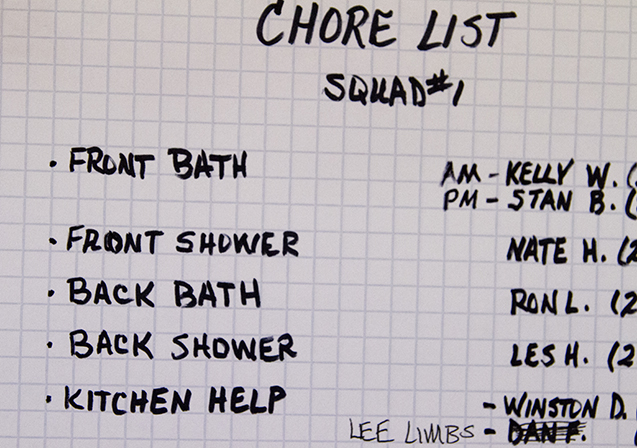 CHORE LIST
SQUAD #1
• FRONT BATH AM - KELLY W. (
PM - STAN B. (
• FRONT SHOWER NATE H. (2
• BACK BATH RON L. (2
• BACK SHOWER LES H. (2
• KITCHEN HELP - WINSTON D.
LEE LIMBS - DAN F.